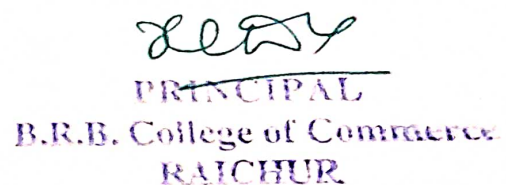 PRINCIPAL
B.R.B. College of Commerce
RAICHUR